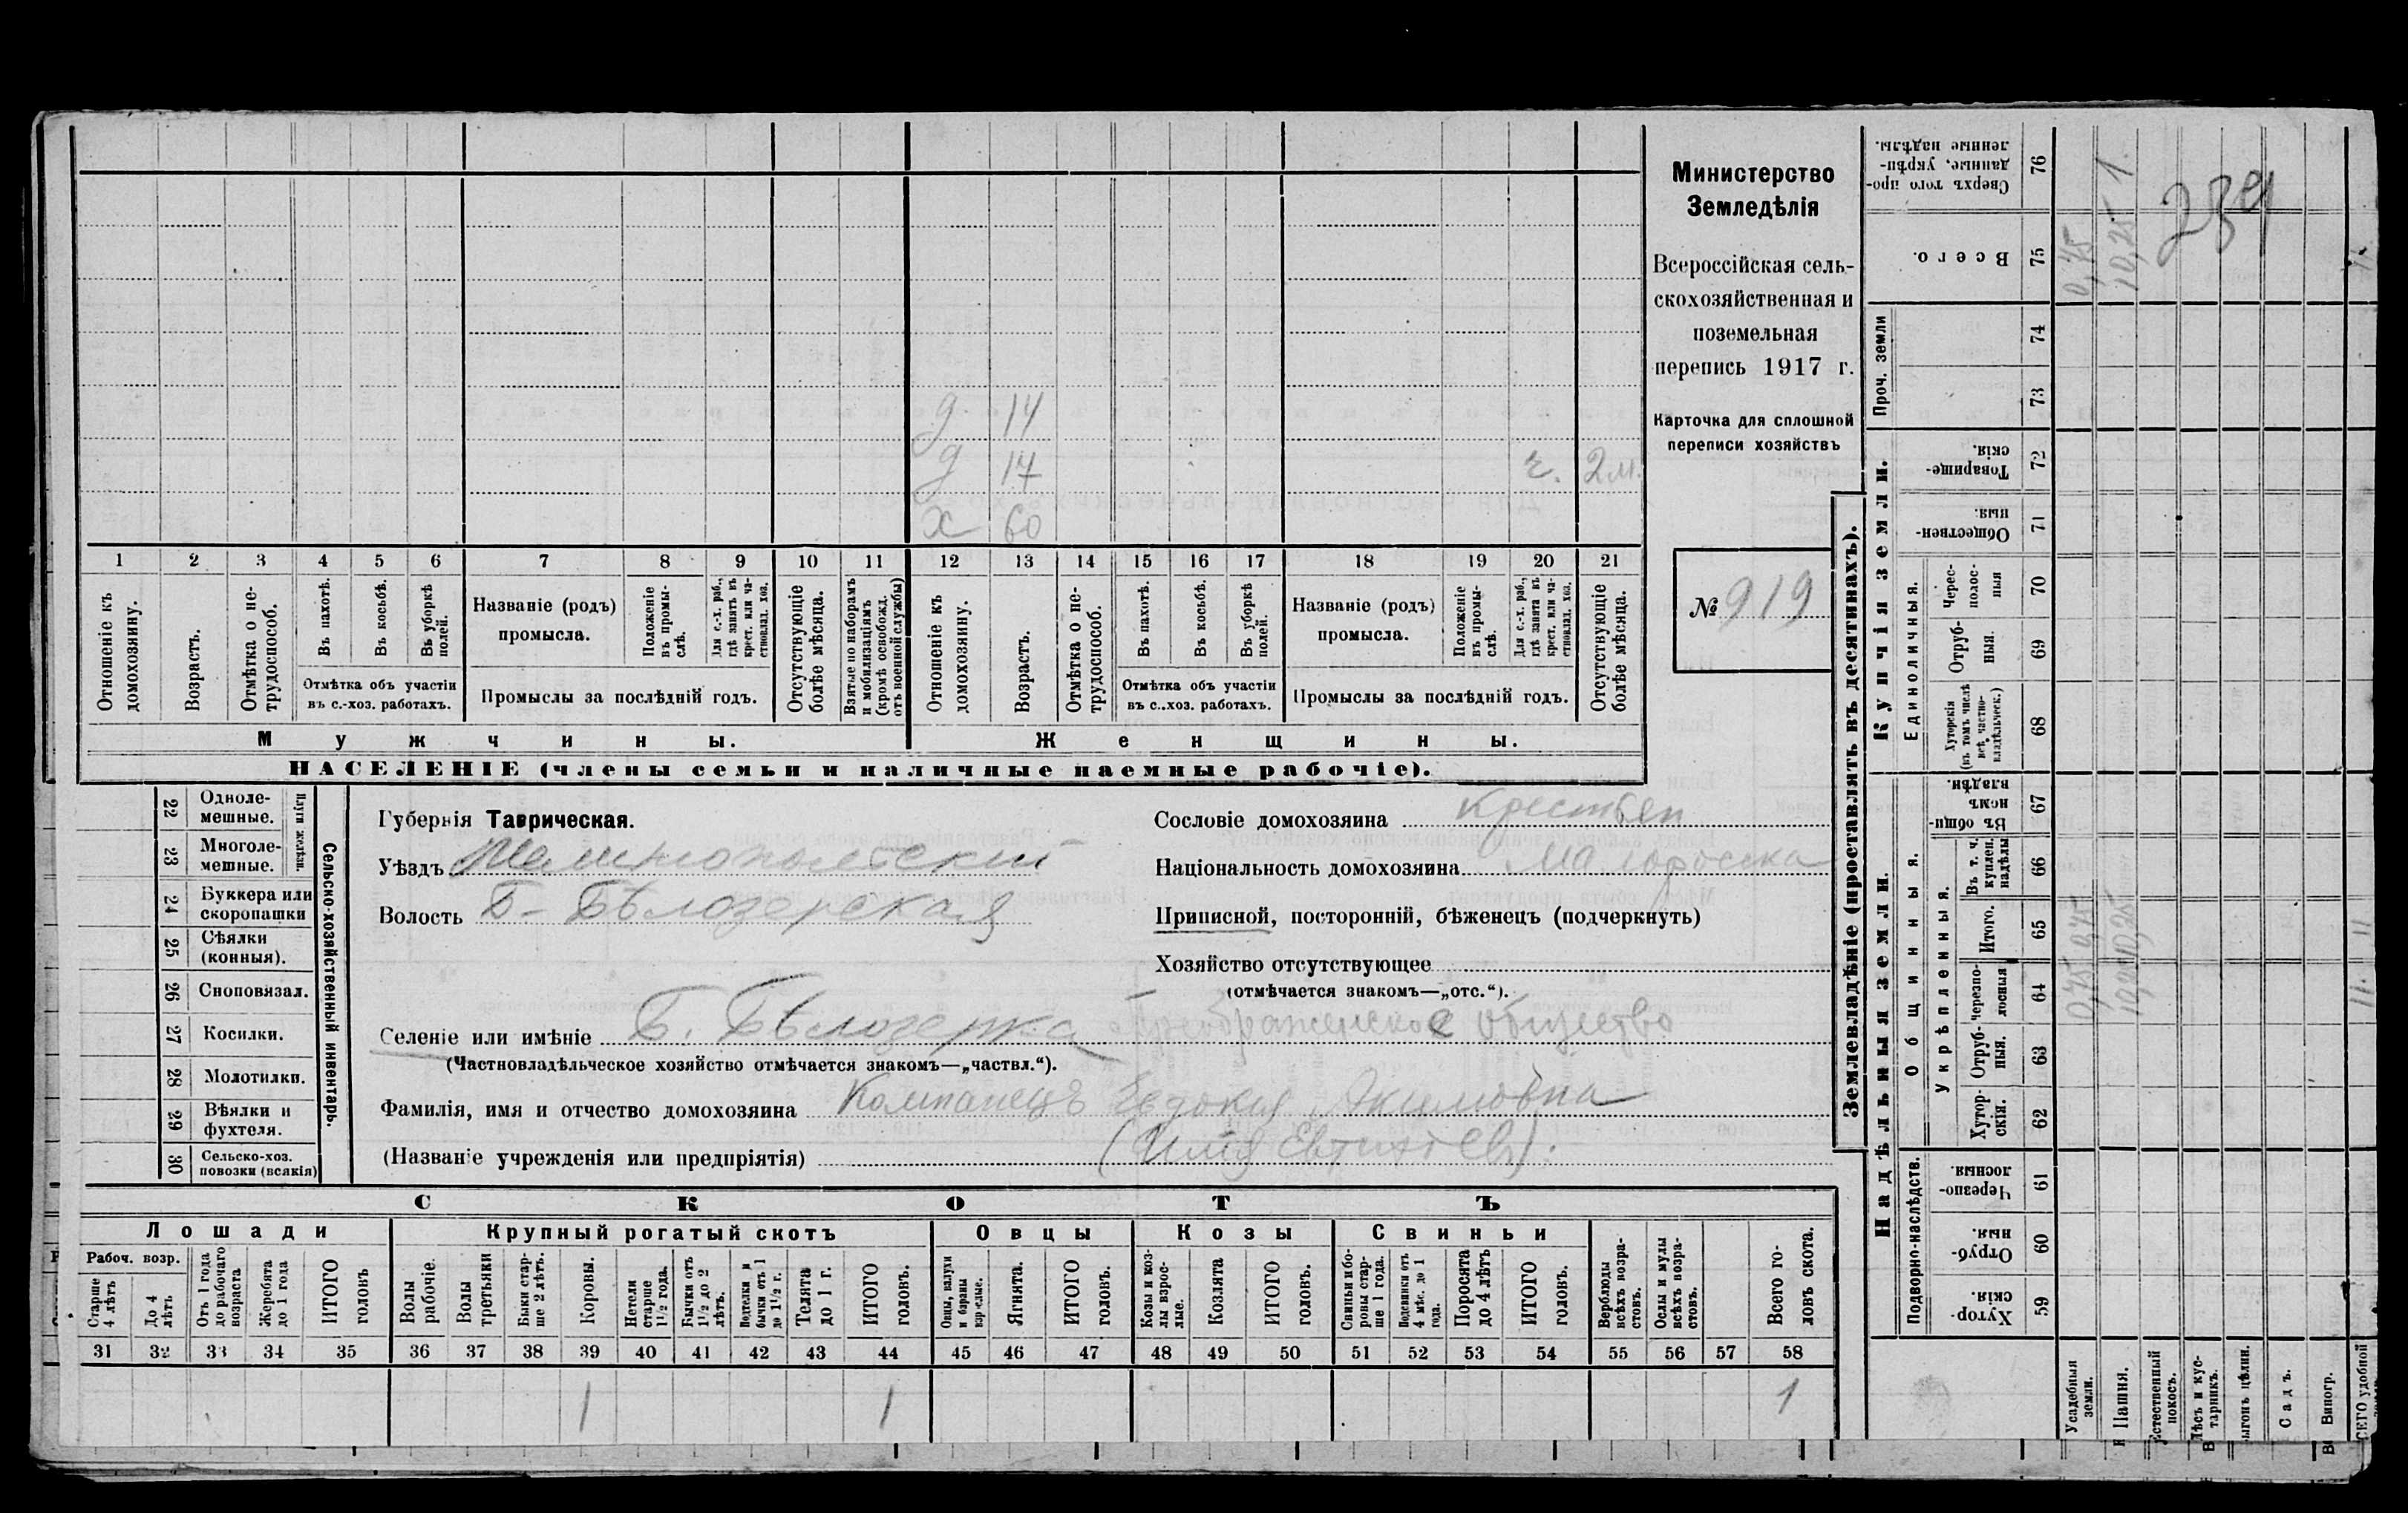 Министерство
Земледѣлія
Всероссійская сель-
скохозяйственная и
поземельная
перепись 1917 г.
Карточка для сплошной
переписи хозяйствъ
№ 919
д 14
д 17 2м.
х 60
1 2 3 4 5 6 7 8 9 10 11 12 13 14 15 16 17 18 19 20 21
Отношеніе къ домохозяину.
Возрастъ.
Отмѣтка о не-трудоспособ.
Въ пахотѣ.
Въ косьбѣ.
Въ уборкѣ полей.
Отмѣтка объ участіи
въ с.-хоз. работахъ.
Названіе (родъ)
промысла.
Положеніе въ промы-слѣ.
Для с.-х. раб., гдѣ занятъ въ крест. или ча-стновлад. хоз.
Промыслы за послѣдній годъ.
Отсутствующіе болѣе мѣсяца.
Взятые по наборамъ и мобилизаціямъ (кромѣ освобожд. отъ военной службы)
Отношеніе къ домохозяину.
Возрастъ.
Отмѣтка о не-трудоспособ.
Въ пахотѣ.
Въ косьбѣ.
Въ уборкѣ полей.
Отмѣтка объ участіи
въ с..хоз. работахъ.
Названіе (родъ)
промысла.
Положеніе въ промы-слѣ.
Для с.-х. раб., гдѣ занята въ крест. или ча-стновлад. хоз.
Промыслы за послѣдній годъ.
Отсутствующіе болѣе мѣсяца.
Мужчины.
Женщины.
НАСЕЛЕНІЕ (члены семьи и наличные наемные рабочіе).
Сельско-хозяйственный инвентарь.
Плуги желѣзн.
22 Одноле-мешные.
23 Многоле-мешные.
24 Буккера или скоропашки
25 Сѣялки (конныя).
26 Сноповязал.
27 Косилки.
28 Молотилки.
29 Вѣялки и фухтеля.
30 Сельско-хоз. повозки (всякія)
Губернія Таврическая.
Уѣздъ Мелитопольский
Волость Б-Бѣлозерская
Сословіе домохозяина Крестьян
Національность домохозяина Малоросска
Приписной, посторонній, бѣженецъ (подчеркнуть)
Хозяйство отсутствующее
(отмѣчается знакомъ—„отс.“).
Селеніе или имѣніе Б. Бѣлозерка Преображенское общество
(Частновладѣльческое хозяйство отмѣчается знакомъ—„частвл.“).
Фамилія, имя и отчество домохозяина Компанецъ Евдокия Акимовна
(Названіе учрежденія или предпріятія)
СКОТЪ
Лошади
Крупный рогатый скотъ
Овцы
Козы
Свиньи
Рабоч. возр.
Старше 4 лѣтъ
До 4 лѣтъ
Отъ 1 года до рабочаго возраста
Жеребята до 1 года
ИТОГО головъ
Волы рабочіе.
Волы третьяки
Быки стар-ше 2 лѣтъ.
Коровы.
Нетели старше 1½ года.
Бычки отъ 1½ до 2 лѣтъ.
Подтелки и бычки отъ 1 до 1½ г.
Телята до 1 г.
ИТОГО головъ.
Овцы, валухи и бараны взрослые.
Ягнята.
ИТОГО головъ.
Козы и коз-лы взрос-лые.
Козлята
ИТОГО головъ.
Свиньи и бо-ровы стар-ше 1 года.
Подсвинки отъ 4 мѣс. до 1 года.
Поросята до 4 лѣтъ
ИТОГО головъ.
Верблюды всѣхъ возра-стовъ.
Ослы и мулы всѣхъ возра-стовъ.
Всего го-ловъ скота.
31 32 33 34 35 36 37 38 39 40 41 42 43 44 45 46 47 48 49 50 51 52 53 54 55 56 57 58
1 1 1
Землевладѣніе (проставлять въ десятинахъ).
Надѣльныя земли.
Купчія земли.
Проч. земли
Подворно-наслѣдств.
Общинныя.
Укрѣпленныя.
Единоличныя.
Сверхъ того про-данные, укрѣп-ленные надѣлы. 76
Всего. 75
74
73
Товарище-скія. 72
Обществен-ныя. 71
Черес-полос-ныя 70
Отруб-ныя. 69
Хуторскія (въ томъ числѣ всѣ частно-владѣльческ.) 68
Въ общи-номъ владѣн. 67
Въ т. ч. куплен. надѣлы 66
Итого. 65
Черезпо-лосныя 64
Отруб-ныя. 63
Хутор-скія. 62
Черезпо-лосныя. 61
Отруб-ныя. 60
Хутор-скія. 59
Усадебныя земли. 0,75 0,75 0,75
Пашня. 10,25 10,25 10,25 1.
Естественный покосъ.
Лѣсъ и кус-тарникъ.
Выгонъ цѣлин.
Садъ.
Виногр.
ВСЕГО удобной 11. 11